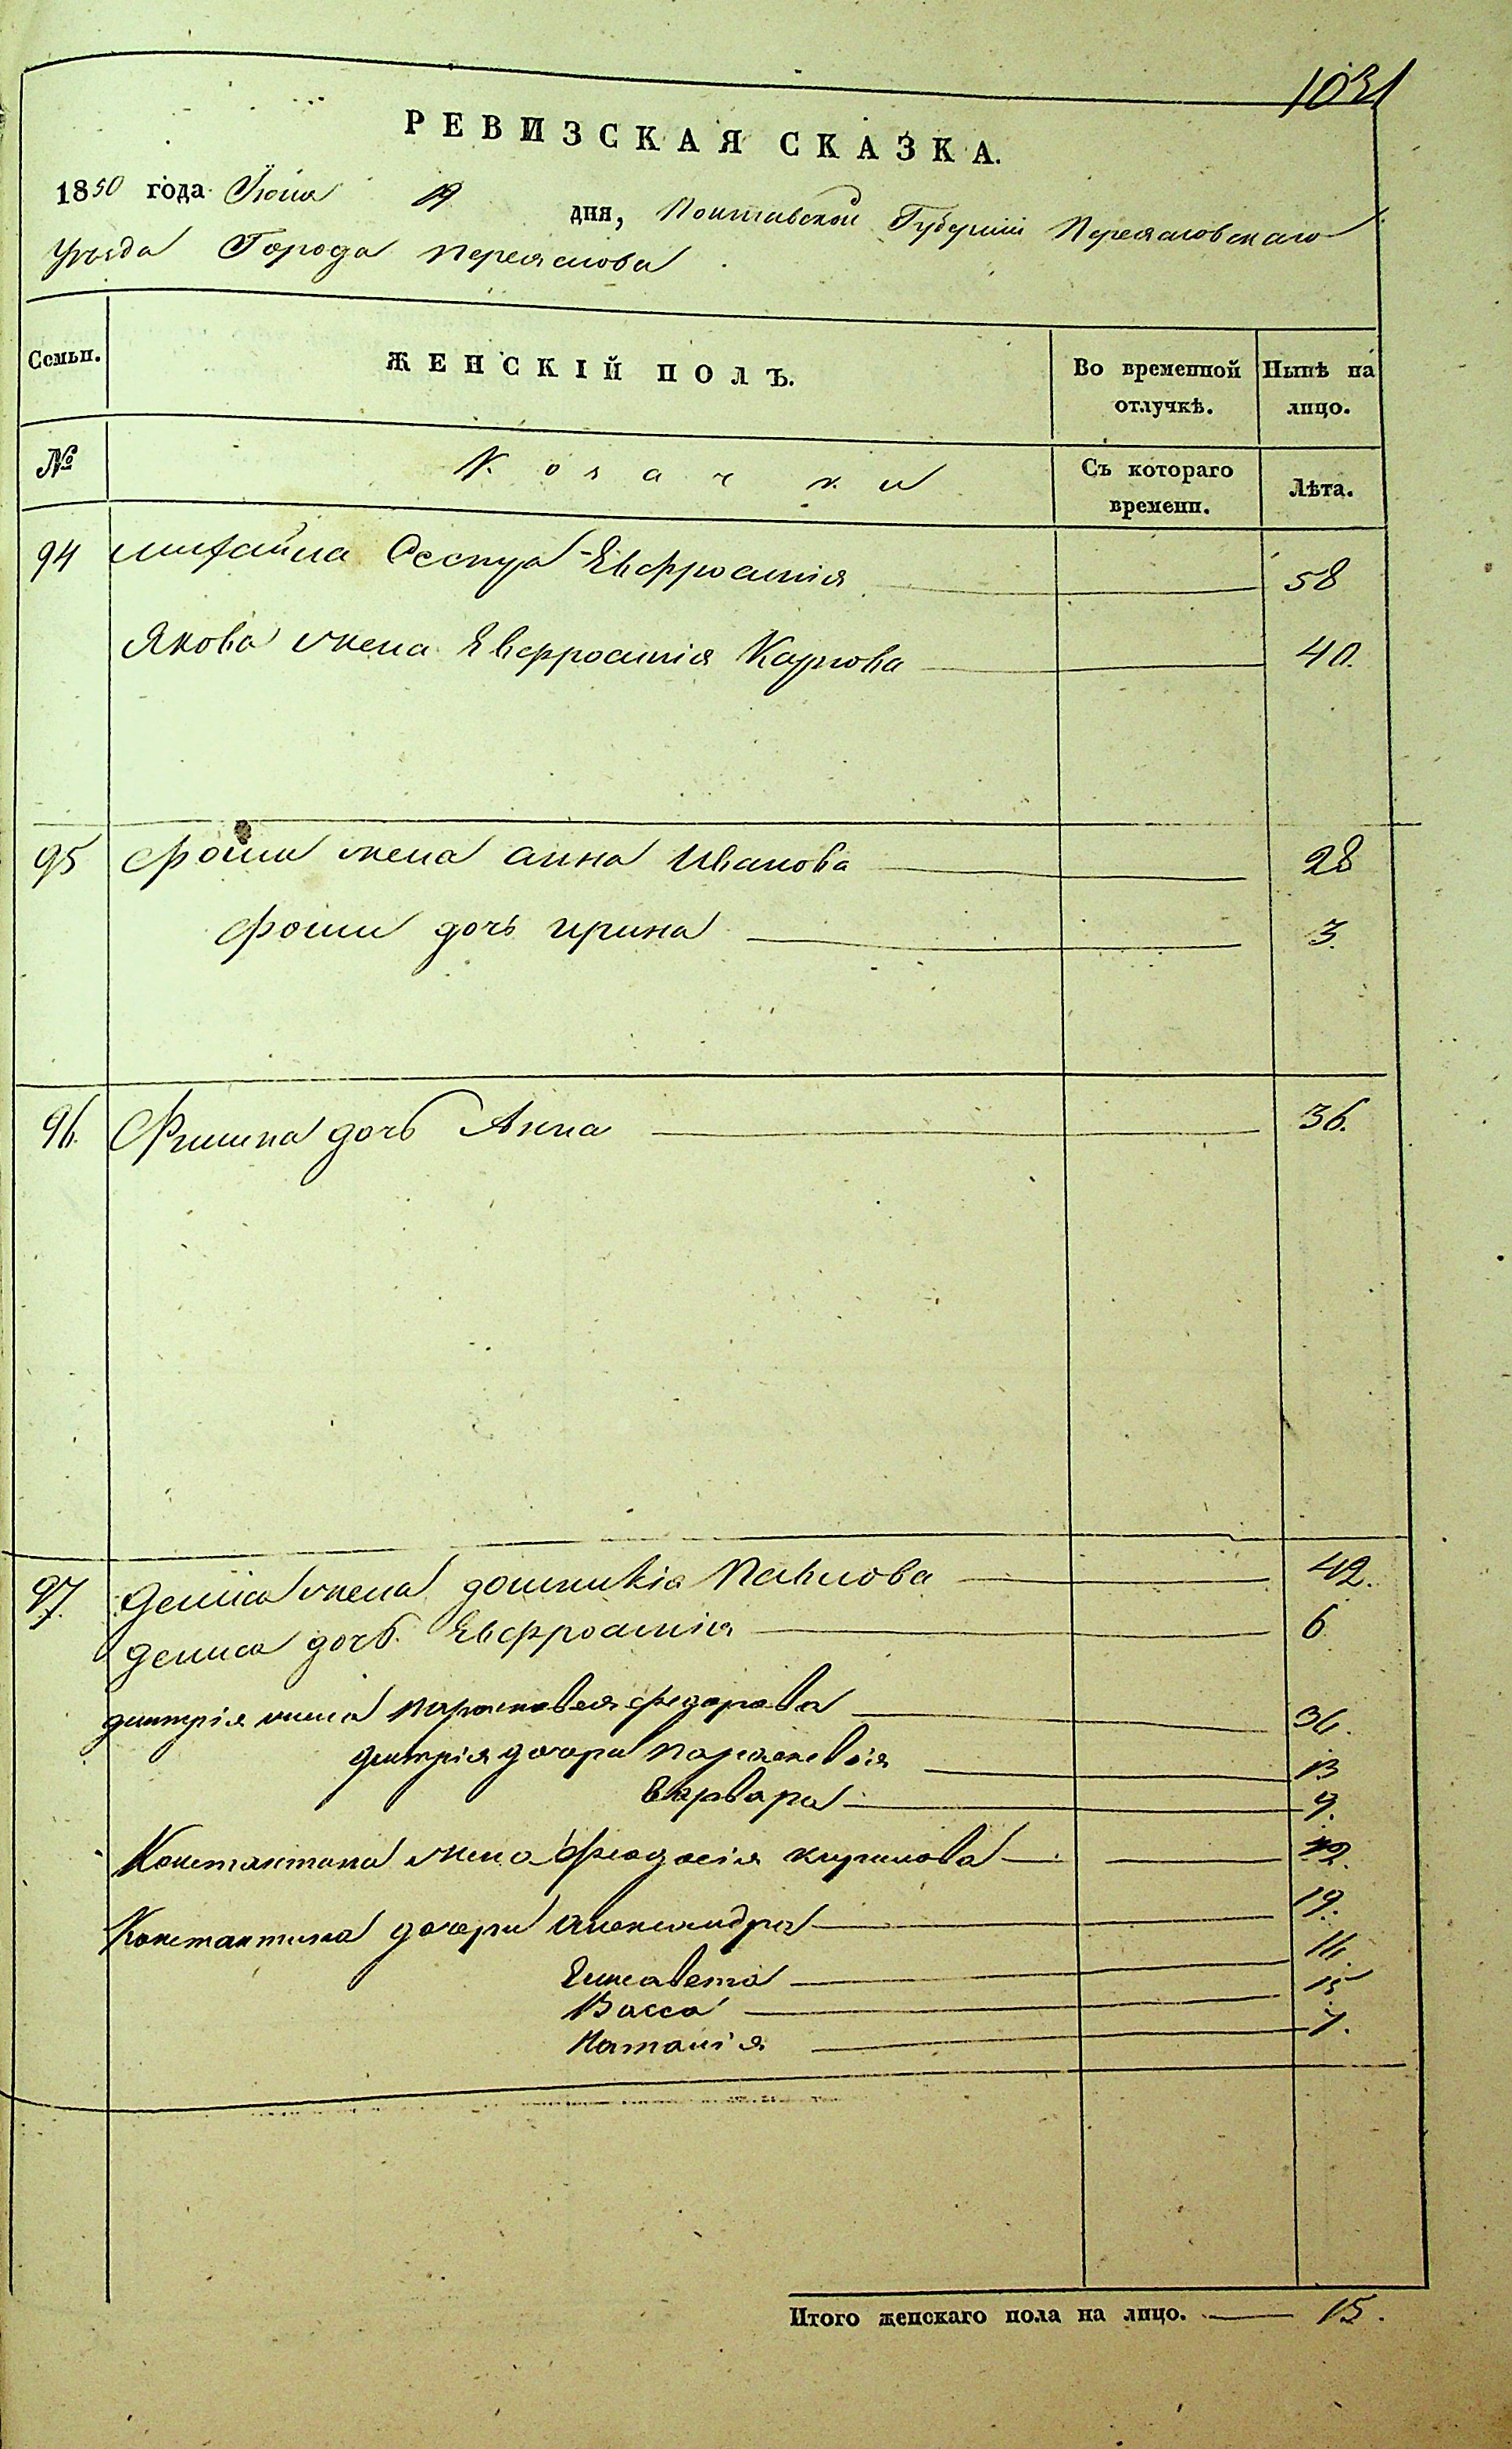 1031
РЕВИЗСКАЯ СКАЗКА.
1850 года Июня 19 дня, Полтавской Губерніи Переяславского
Уѣзда Города Переяслова
Семьи. ЖЕНСКІЙ ПОЛЪ. Во временной отлучкѣ. Нынѣ на лицо.
№ Козачки Съ котораго времени. Лѣта.
94 Михайла Сестра Евфросинія 58
Якова жена Евфросинія Карпова 40.
95 Фомы жена анна Иванова 28
Фомы дочь ирина 3.
96. дочь Анна 36.
97. Дениса жена домникія Павлова 42.
Дениса дочь Евфросинія 6
дмитрія жена Парасковея федорова 36.
дмитрія дочери Параскевія 13
Варвара 9.
Константина жена Феодосія кирилова 42.
Константина дочери Александра 19.
Елисавета 16.
Васса 15
Наталія 7.
Итого женскаго пола на лицо. 15.